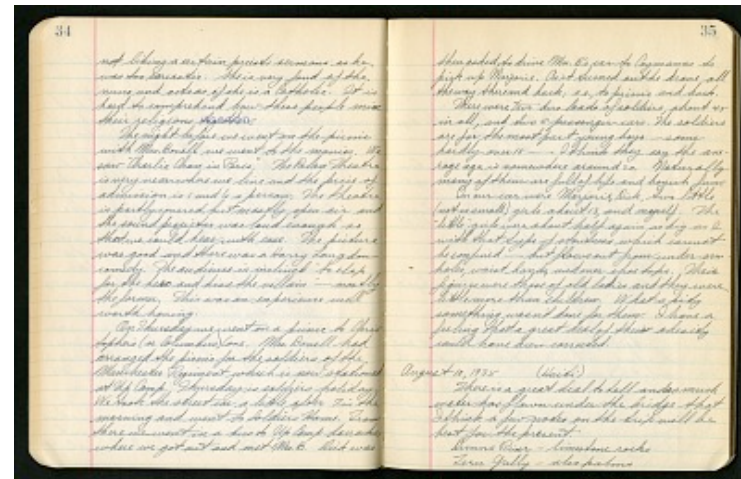 34
not liking a certain priests sermons, as he
was too sarcastic. She is very fond of the
nuns and acts as if she is a Catholic. It is
hard to comprehend how these people mix
their religions
The night before we went on the picnic
with Mrs. Bovell we went to the movies. We
saw "Charlie Chan in Paris". The Palace Theatre
is very near where we live and the price of
admission is a person. The theatre
is partly covered, but mostly open air and
the sound projector was loud enough so
that we could hear with ease. The picture
was good and there was a Harry Langdon
comedy. The audience is inclined to clap
for the hero and hiss the villain — mostly
the former. This was an experience well
worth having.
On Thursday we went on a picnic to
(or Columbus) Cove. Mrs. Bovell had
arranged the picnic for the soldiers of the
Manchester Regiment which is now stationed
at Up Camp. Thursday is soldiers holiday.
We took the street car a little after 7 in the
morning and went to Soldiers Home. From
there we went in a bus to Up Camp barracks
where we got out and met Mrs. B. Dick was
35
then asked to drive Mrs. B's car to Caymanas to
pick up Marjorie. As it turned out he drove all
the way there and back, i.e., to picnic and back.
There were two bus loads of soldiers, about
in all, and two passenger cars. The soldiers
are for the most part young boys — some
hardly men — I think they say the ave-
rage age is somewhere around 20. Naturally
many of them are full of life and boyish fun.
In our car were Marjorie, Dick, two little
(not so small) girls about 13, and myself. The
little girls were about half again as big as I
with that type of stoutness which cannot
be confined — but flows out from under arm
holes, waist bands, and over shoe tops. Their
figures were those of old ladies and they were
little more than children. What a pity
something wasn't done for them. I have a
feeling that a great deal of their obesity
could have been corrected.
August 19, 1935 (Haiti)
There is a great deal to tell and so much
water has flown under the bridge that
I think a few notes on the trip will be
best for the present.
River — limestone rocks
Fern Gully — also palms